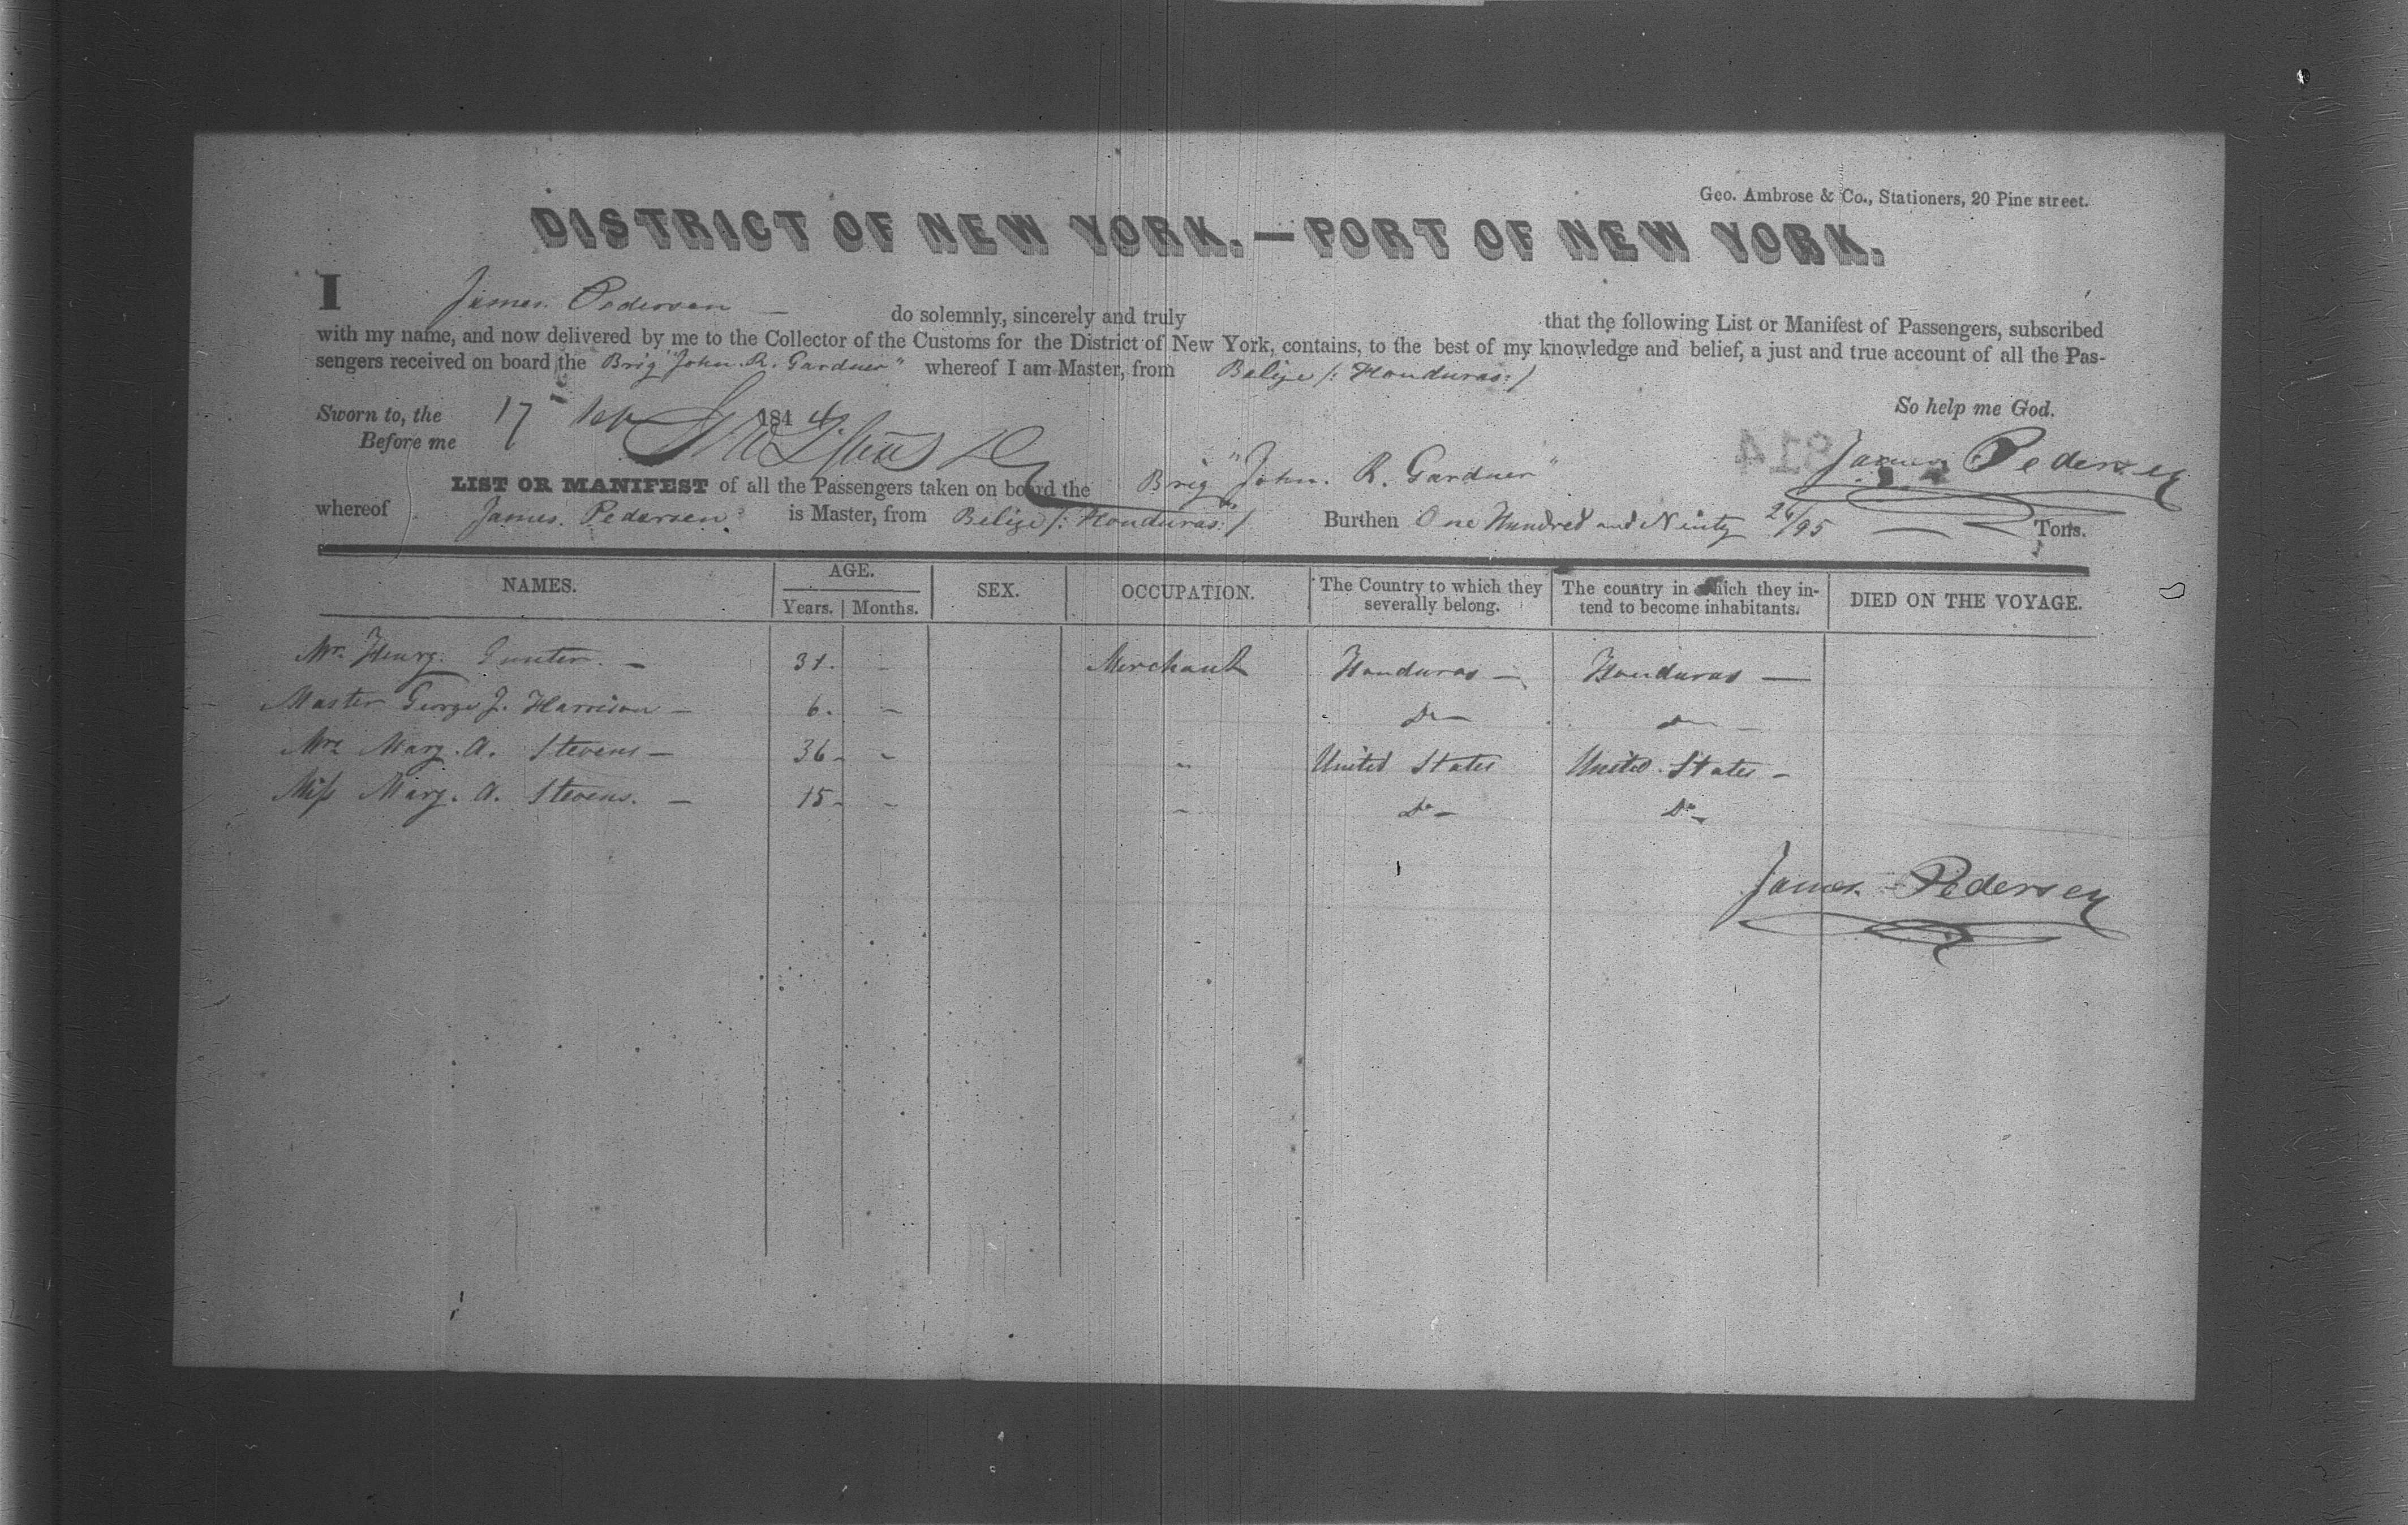 Geo. Ambrose & Co., Stationers, 20 Pine street.
DISTRICT OF NEW YORK.—PORT OF NEW YORK.
I James Pedersen — do solemnly, sincerely and truly that the following List or Manifest of Passengers, subscribed
with my name, and now delivered by me to the Collector of the Customs for the District of New York, contains, to the best of my knowledge and belief, a just and true account of all the Pas-
sengers received on board the Brig "John. R. Gardner" whereof I am Master, from Belize /: Honduras :/
So help me God.
Sworn to, the 17 Sep 1844.
Before me
James Pedersen
814
LIST OR MANIFEST of all the Passengers taken on board the Brig "John. R. Gardner"
whereof James. Pedersen. is Master, from Belize /: Honduras :/ Burthen One Hundred and Ninety 26/95 — Tons.
NAMES. AGE. SEX. OCCUPATION. The Country to which they severally belong. The country in which they in-tend to become inhabitants. DIED ON THE VOYAGE.
Years. Months.
Mr. Henry. — 31. - Merchant Honduras — Honduras —
Master George J. Harrison — 6. - Do — Do —
Mrs Mary. A. Stevens — 36. - " United States United States —
Miss Mary. A. Stevens. — 15. - - Do — Do —
James Pedersen